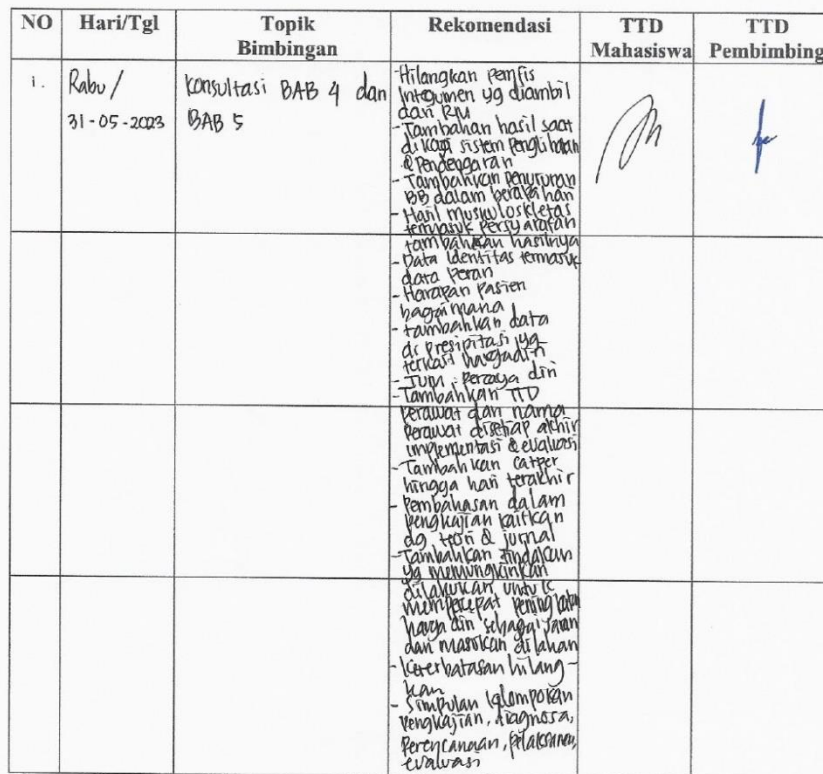 NO Hari/Tgl Topik Bimbingan Rekomendasi TTD Mahasiswa TTD Pembimbing
1. Rabu / 31-05-2023
Konsultasi BAB 4 dan
BAB 5
- Hilangkan pemfis
Integumen yg diambil
dari RM
- Tambahan hasil saat
dikaji sistem penglihatan
& Pendengaran
- Tambahkan penurunan
BB dalam berapa hari
- Hasil muskuloskletas
termasuk persyarafan
tambahkan hasilnya
- Data identitas termasuk
data peran
- Harapan pasien
bagaimana
- tambahkan data
di presipitasi yg
terkait hargadiri
- TUM : percaya diri
- Tambahkan TTD
perawat dan nama
perawat disetiap akhir
implementasi & evaluasi
- Tambahkan catper
hingga hari terakhir
- pembahasan dalam
pengkajian kaitkan
dg teori & jurnal
- Tambahkan tindakan
yg memungkinkan
dilakukan untuk
mempercepat peningkatan
harga diri sebagai saran
dan masukan dilahan
- Keterbatasan hilang-
kan
- Simpulan kelompokan
pengkajian, diagnosa,
perencanaan, pelaksanaan,
evaluasi